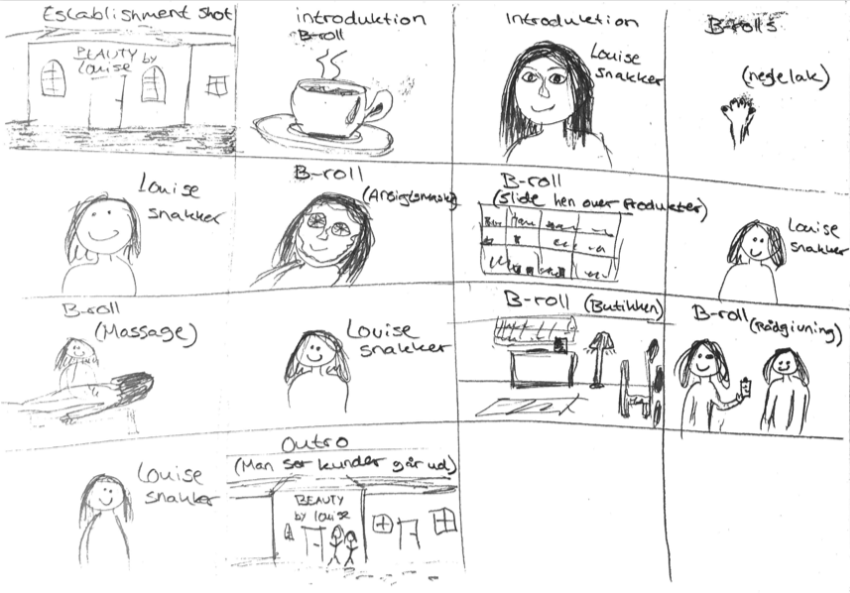 Establishment shot
BEAUTY by
Louise
introduktion
B-roll
Introduktion
Louise
snakker
B-rolls
(neglelak)
Louise
snakker
B-roll
(Ansigtsmaske)
B-roll
(Slide hen over Produkter)
Louise
snakker
B-roll
(Massage)
Louise
snakker
B-roll (Butikken)
B-roll (Rådgivning)
Louise
snakker
Outro
(Man ser kunder går ud)
BEAUTY
by Louise